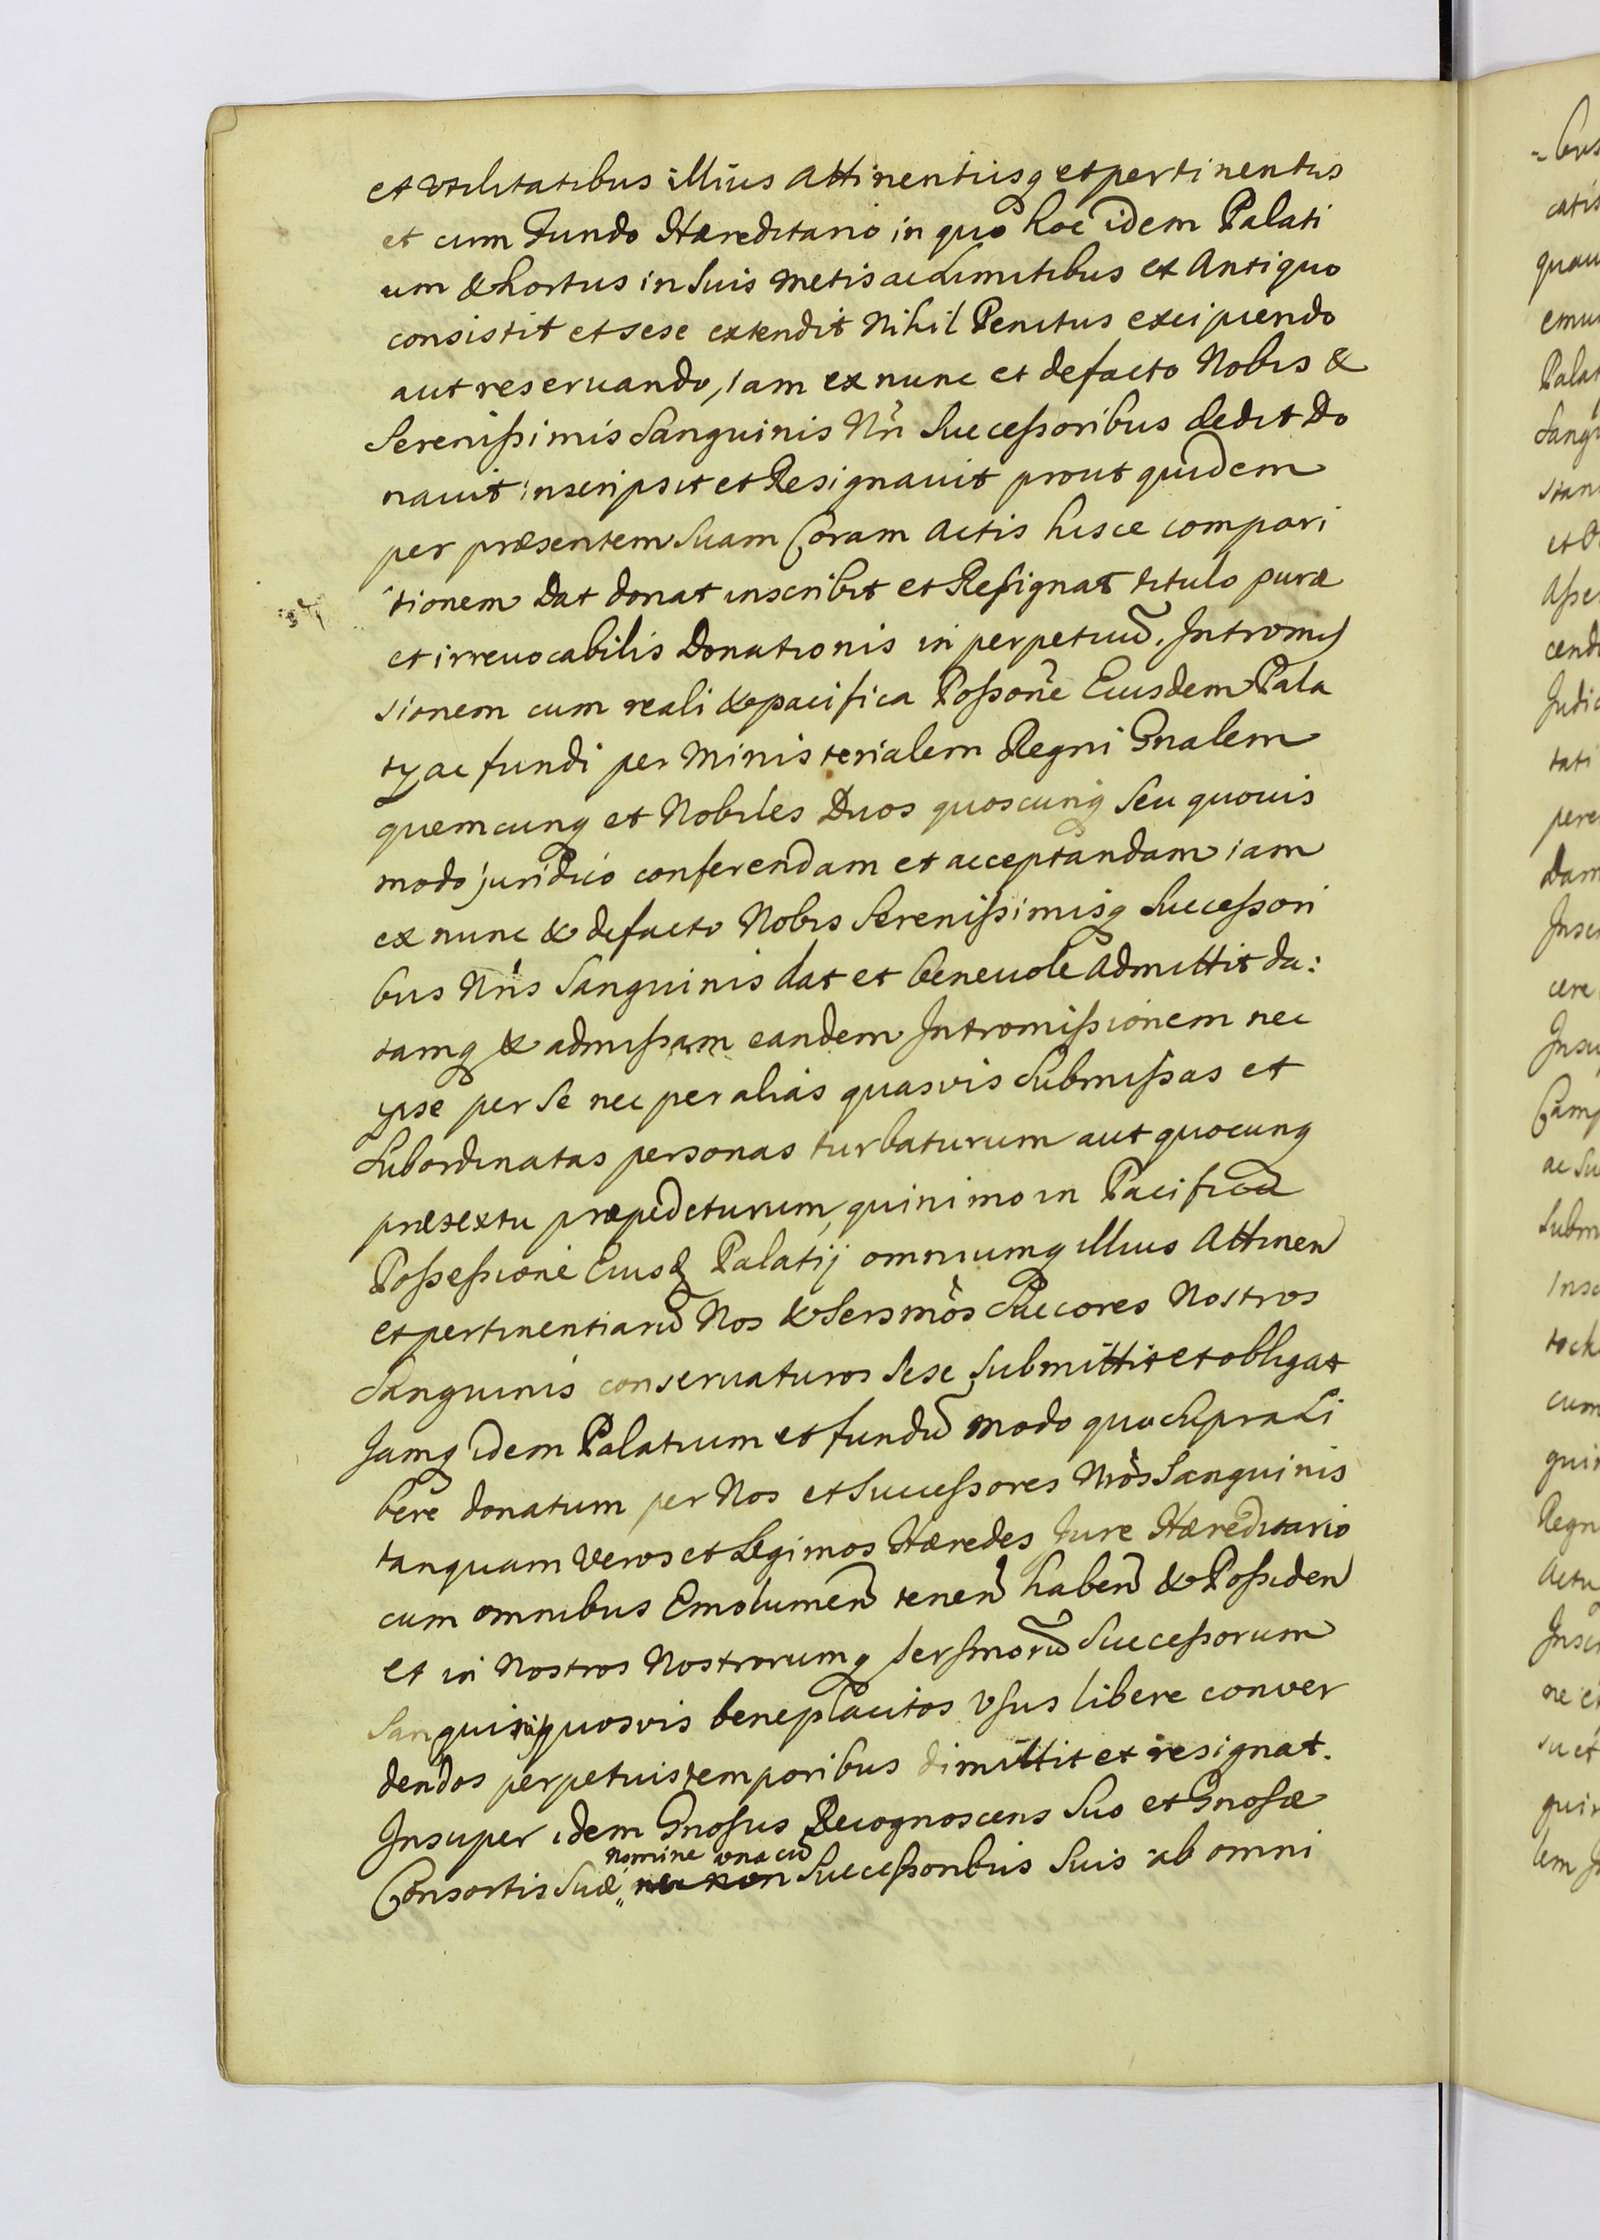 et vtilitatibus illius Attinentiisq et pertinentiis
et cum Fundo Hæreditario in quo hoc idem Palati
um & hortus in Suis metis ac Limitibus ex Antiquo
consistit et sese extendit Nihil Penitus excipiendo
aut reseruando, iam ex nunc et defacto Nobis &
Serenißimis Sanguinis Nri Succeßoribus dedit Do
nauit inscripsit et Resignauit prout quidem
per præsentem Suam Coram Actis hisce compari
tionem Dat donat inscribit et Resignat titulo puræ
et irreuocabilis Donationis in perpetuũ, Intromis
sionem cum reali & pacifica Poßone Eiusdem Pala
tÿ ac fundi per Ministerialem Regni Gnalem
quemcunq et Nobiles Duos quoscunq Seu quouis
modo juridico conferendam et acceptandam iam
ex nunc & defacto Nobis Serenißimisq Succeßori
bus Nris Sanguinis dat et beneuole Admittit da:
tamq & admißam eandem Intromißionem nec
ipse per Se nec per alias quasvis Submißas et
Subordinatas personas turbaturum aut quocunq
prætextu præpediturum, quinimo in Pacifica
Poßeßione Eiusd Palatij omniumq illius Attinen
et pertinentiarũ Nos & Sersmos Succores Nostros
Sanguinis conseruaturos Sese Submittit et obligat
Jamq idem Palatium et fundũ modo quo Supra Li
bere donatum per Nos et Succeßores Nros Sanguinis
tanquam Veros et Legimos Hæredes Jure Hæreditario
cum omnibus Emolumen tenen haben & Poßiden
et in Nostros Nostrorumq Sersmorũ Succeßorum
Sanguinis quosvis beneplacitos Vsus libere conver
dendos perpetuis temporibus dimittit et resignat.
Insuper idem Gnosus Recognoscens Suo et Gnosæ
nomine vna cũ
Consortis Suæ, nec non Succeßoribus Suis ab omni